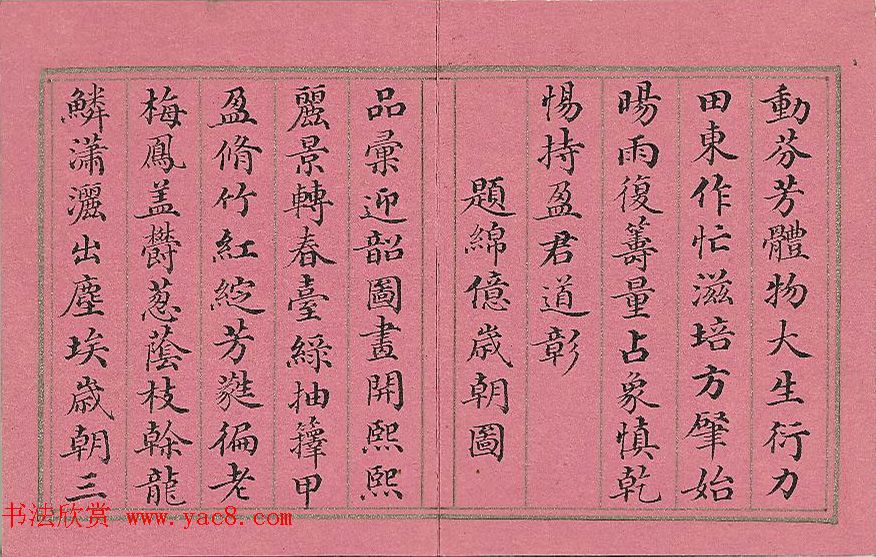 動芬芳體物大生衍力
田東作忙滋培方肇始
暘雨復籌量占象慎乾
惕持盈君道彰
題綿億歲朝圖
品彙迎韶圖畫開熙熙
麗景轉春臺綠抽籜甲
盈脩竹紅綻芳蕤徧老
梅鳳蓋欝蔥蔭枝榦龍
鱗瀟灑出塵埃歲朝三
书法欣赏 www.yac8.com